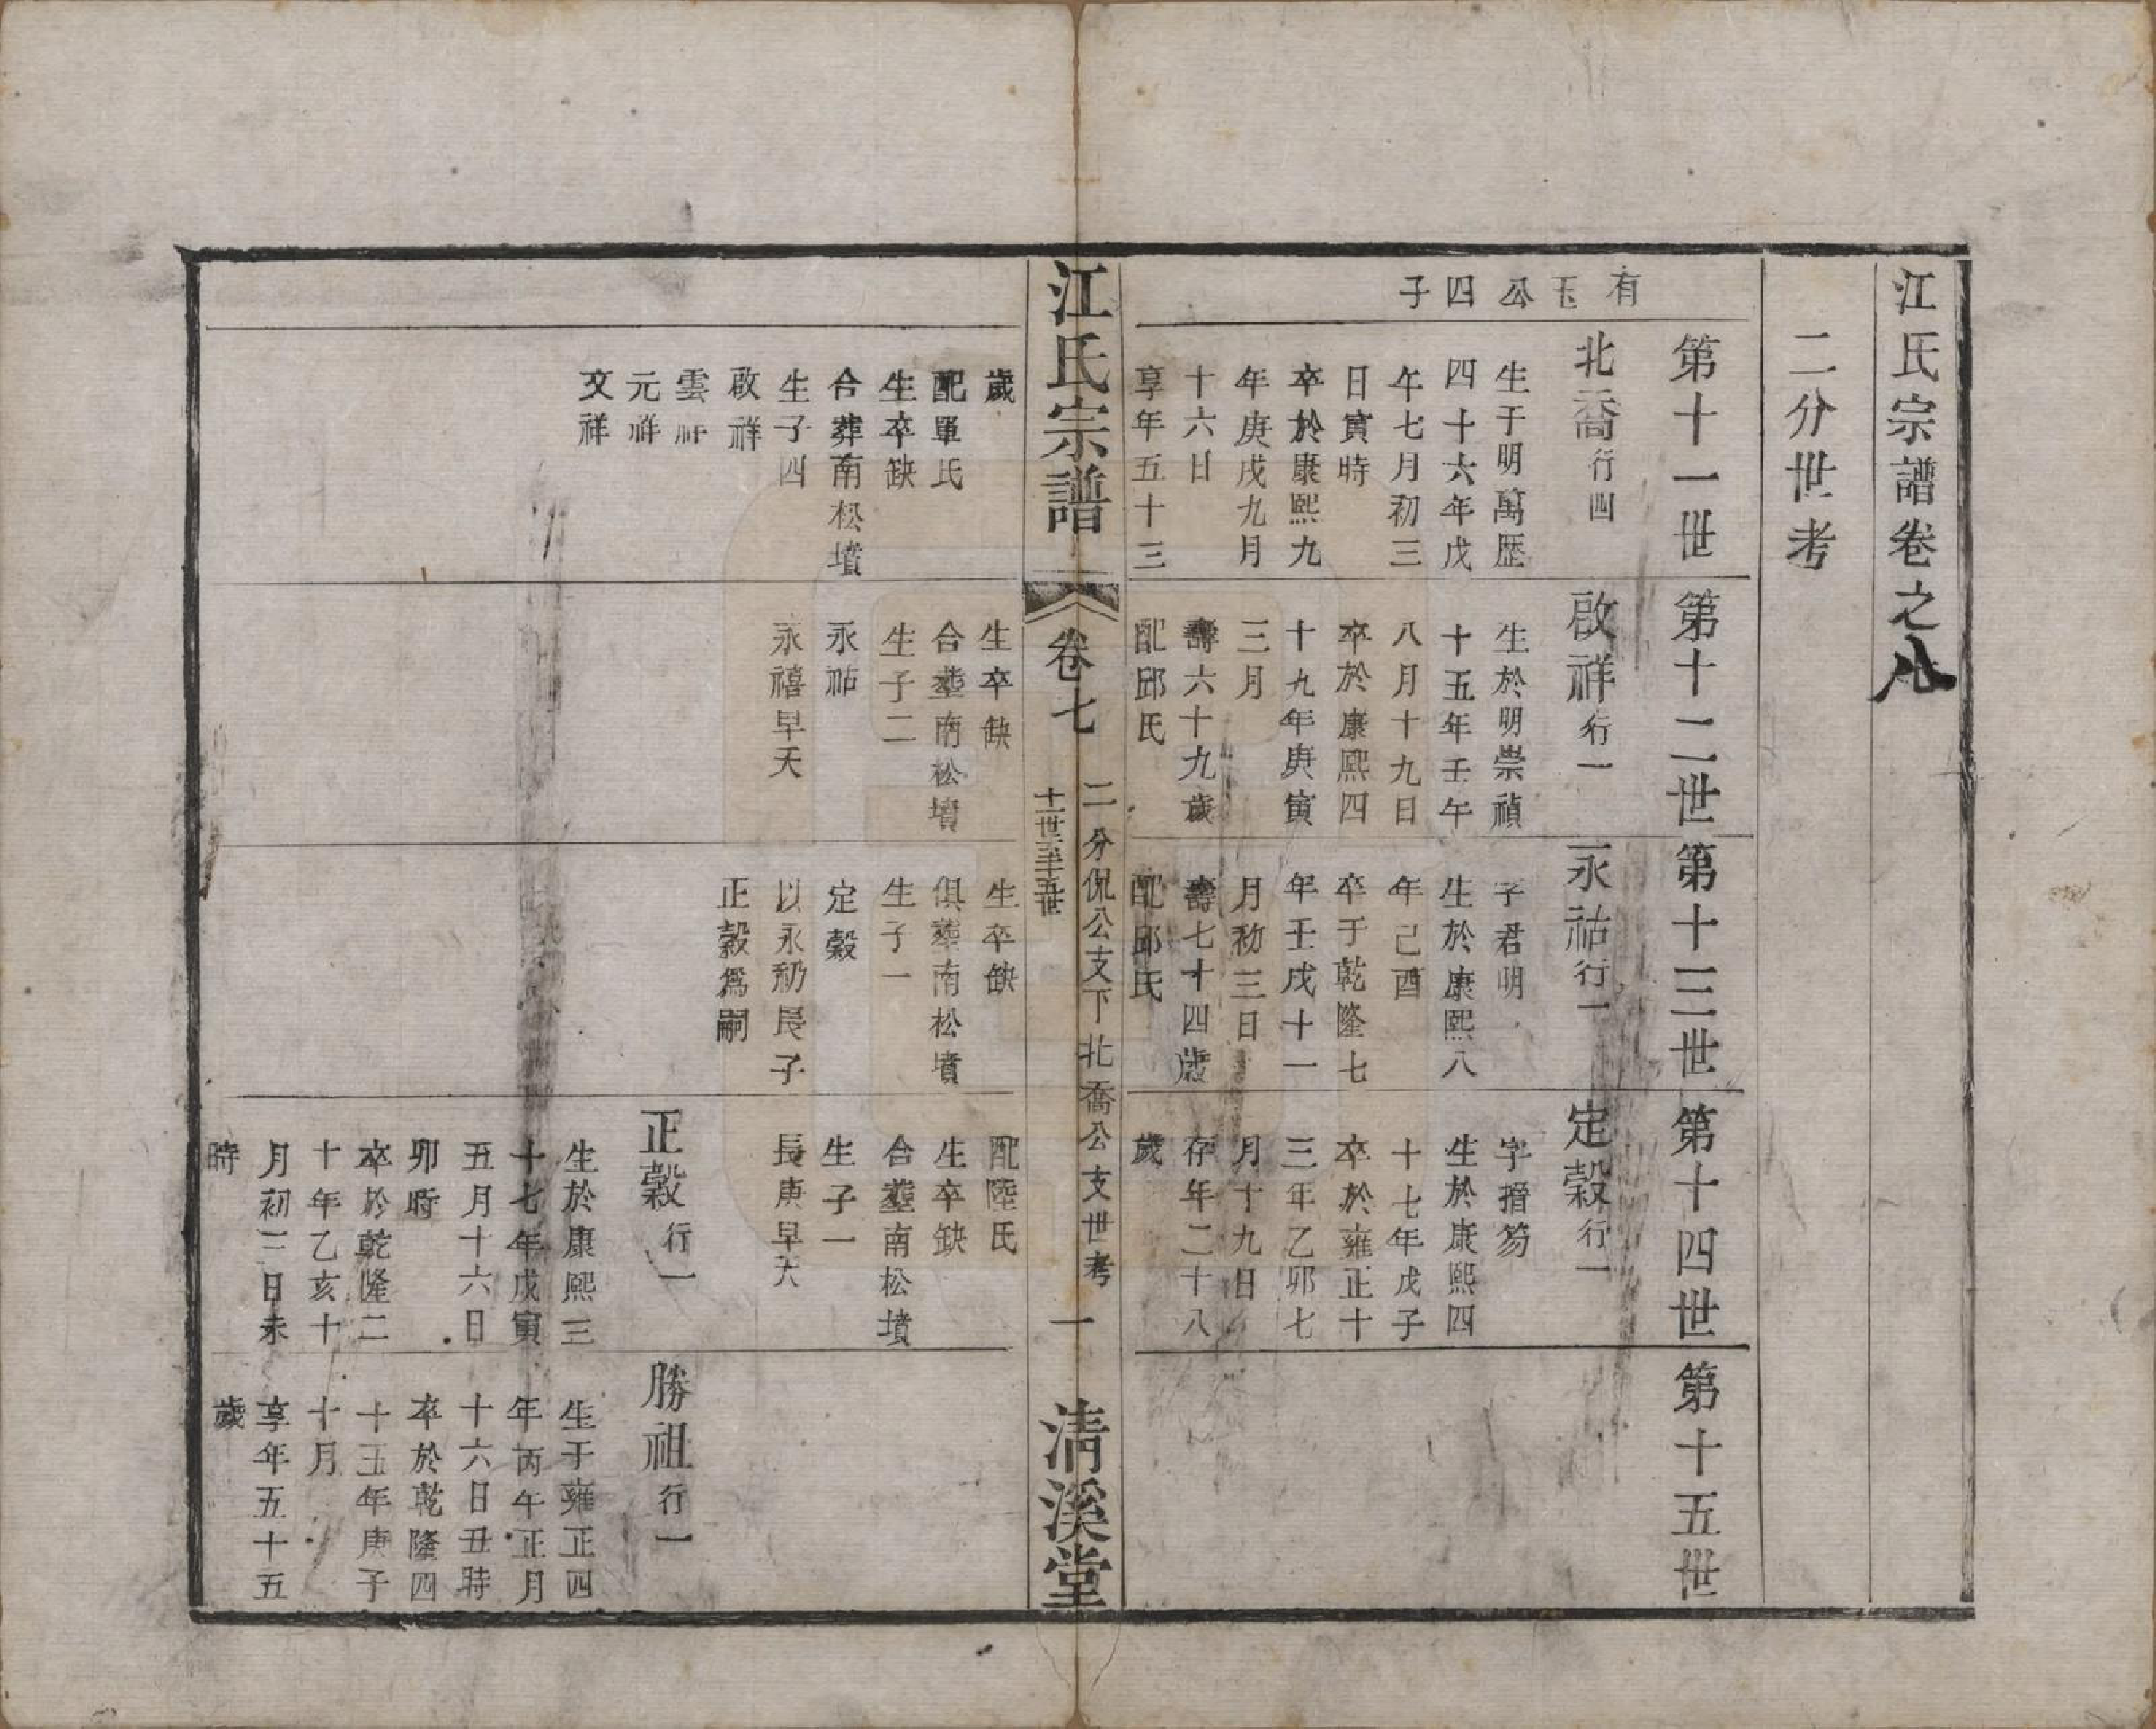 江氏宗譜卷之八
二分世考
有玉公四子
第十一世
北喬行四
生于明萬歷
四十六年戊
午七月初三
日寅時
卒於康熙九
年庚戌九月
十六日
享年五十三
歲
配單氏
生卒缺
合葬南松墳
生子四
啟祥
雲祥
元祥
文祥
第十二世
啟祥行一
生於明崇禎
十五年壬午
八月十九日
卒於康熙四
十九年庚寅
三月
壽六十九歲
配邱氏
生卒缺
合塟南松墳
生子二
永祐
永禧早夭
第十三世
永祜行一
字君明
生於康熙八
年己酉
卒于乾隆七
年壬戌十一
月初三日
壽七十四歲
配邱氏
生卒缺
俱塟南松墳
生子一
定穀
以永礽長子
正穀爲嗣
第十四世
定穀行一
字搢笏
生於康熙四
十七年戊子
卒於雍正十
三年乙卯七
月十九日
存年二十八
歲
配陸氏
生卒缺
合塟南松墳
生子一
長庚早夭
正穀行一
生於康熙三
十七年戊寅
五月十六日
卯時
卒於乾隆二
十年乙亥十
月初三日未
時
第十五世
勝祖行一
生于雍正四
年丙午正月
十六日丑時
卒於乾隆四
十五年庚子
十月
享年五十五
歲
江氏宗譜
卷七
二分侃公支下北喬公支世考
十一世至十五世
一
清溪堂